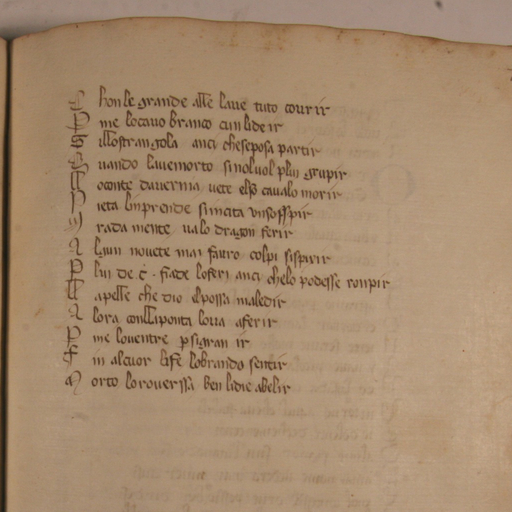 C honle grande alle laue tuto courir
P me locauo branco cun lide ir
E illostrangola anci cheseposa partir
Q uando lauemorto sinoluol plui grupir
L oconte dauernia uete elso cavalo morir
P ieta limprende siincita unsosspir
I rada mente ualo dragon ferir
A lguin nouete mai fauro colpi sisfirir
P lui de c̄ . fiade loferi anci chelo podesse ronpir
L apelle che dio elpossa maledir
A lora conlliponta loua aferir
P me louentre psigran ir
F in alcuor lisfe lobrando sentir
M orto louerssa ben lidie abelir